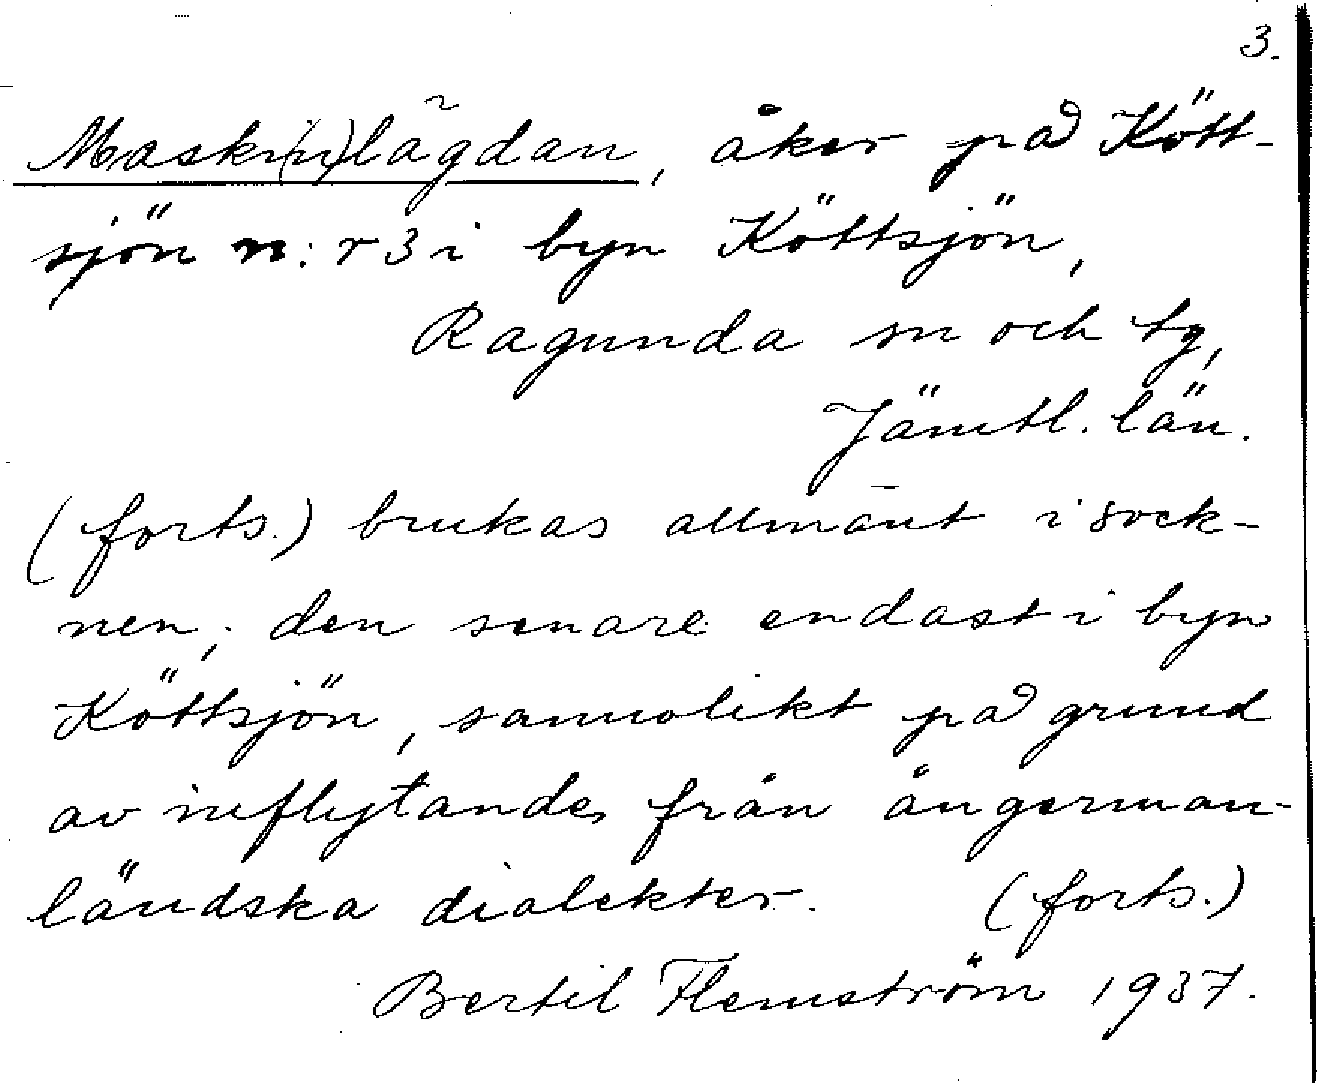 3.
Maski(n)lägdan, åker på Kött-
sjön n:r 3 i byn Köttsjön,
Ragunda sn och tg,
Jämtl. län.
(forts.) brukas allmänt i sock-
nen; den senare endast i byn
Köttsjön, sannolikt på grund
av inflytande från ångerman-
ländska dialekter. (forts.)
Bertil Flemström 1937.